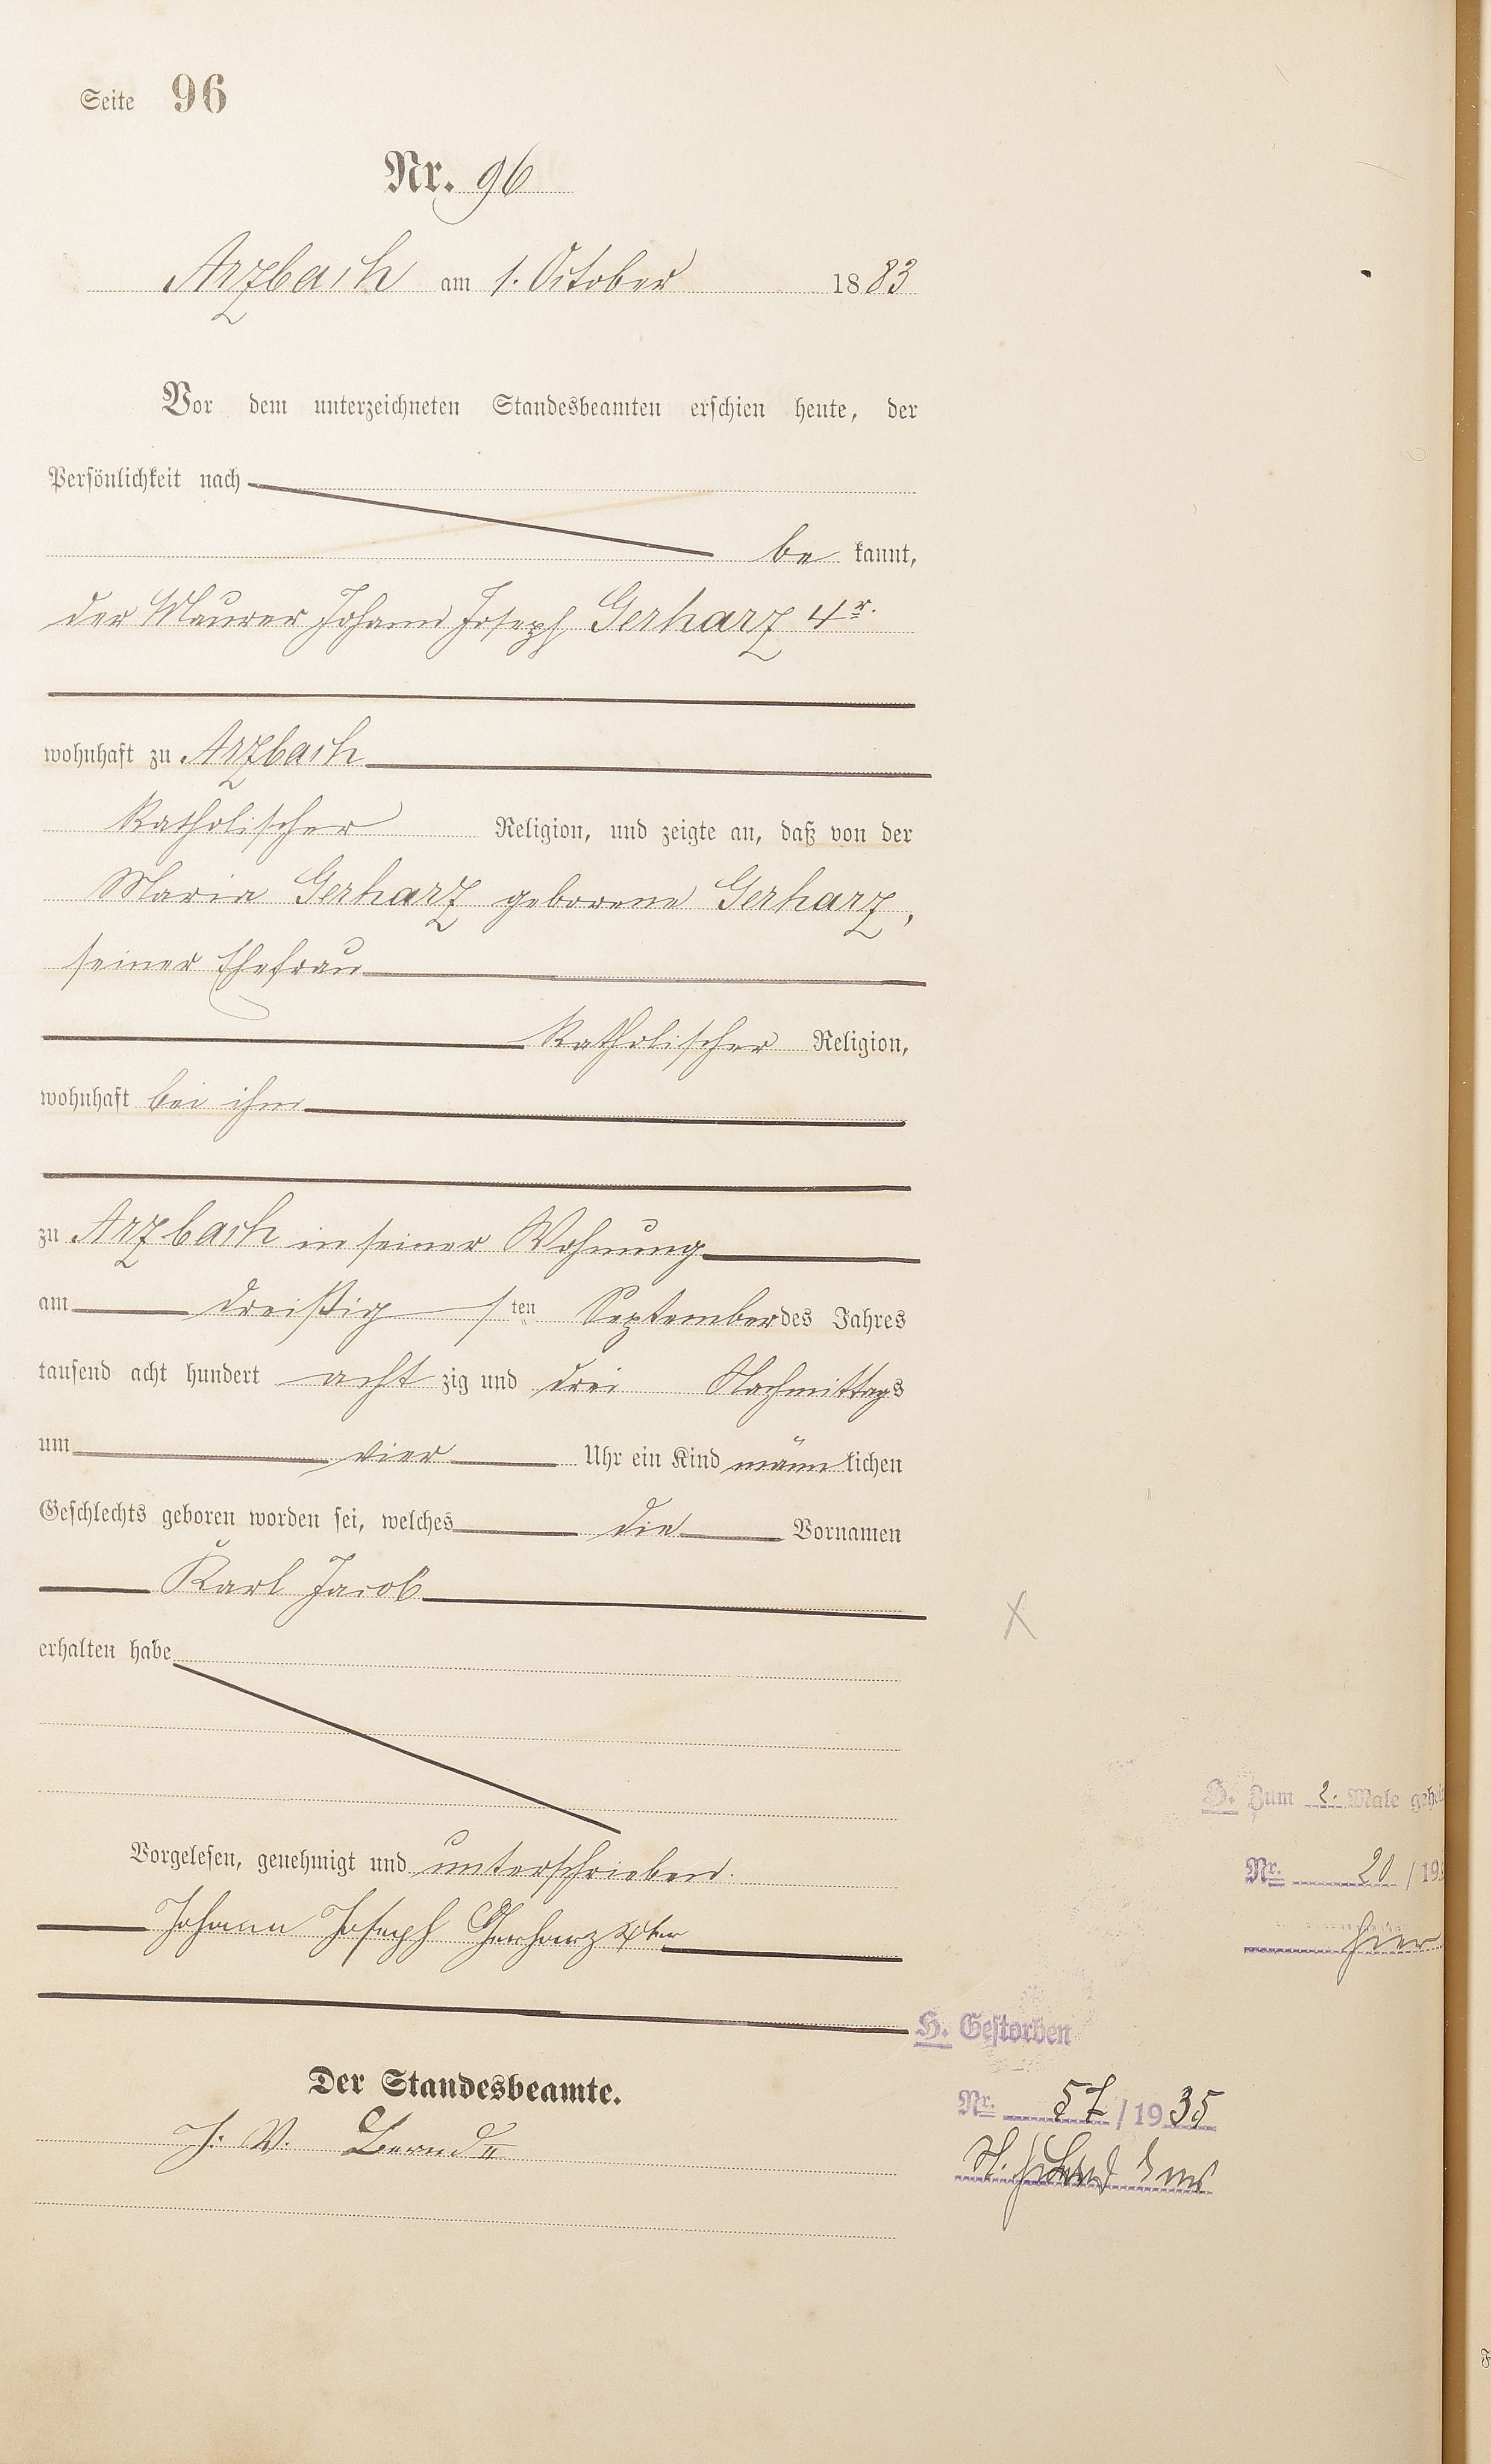 Seite 96
Nr. 96
Arzbach am 1. October 1883
Vor dem unterzeichneten Standesbeamten erschien heute, der
Persönlichkeit nach
be kannt,
der Maurer Johann Joseph Gerharz 4r.
wohnhaft zu Arzbach
katholischer Religion, und zeigte an, daß von der
Maria Gerharz geborene Gerharz,
seiner Ehefrau
katholischer Religion,
wohnhaft bei ihm
zu Arzbach in seiner Wohnung
am dreißig sten September des Jahres
tausend acht hundert acht zig und drei Nachmittags
um vier Uhr ein Kind männlichen
Geschlechts geboren worden sei, welches die Vornamen
Karl Jacob
erhalten habe
Vorgelesen, genehmigt und unterschrieben.
Johann Joseph Gerharz 4ter
Der Standesbeamte.
J. W.
H. Zum 2. Male gehei
Nr. 20 / 19
hier
H. Gestorben
Nr. 57 / 1935